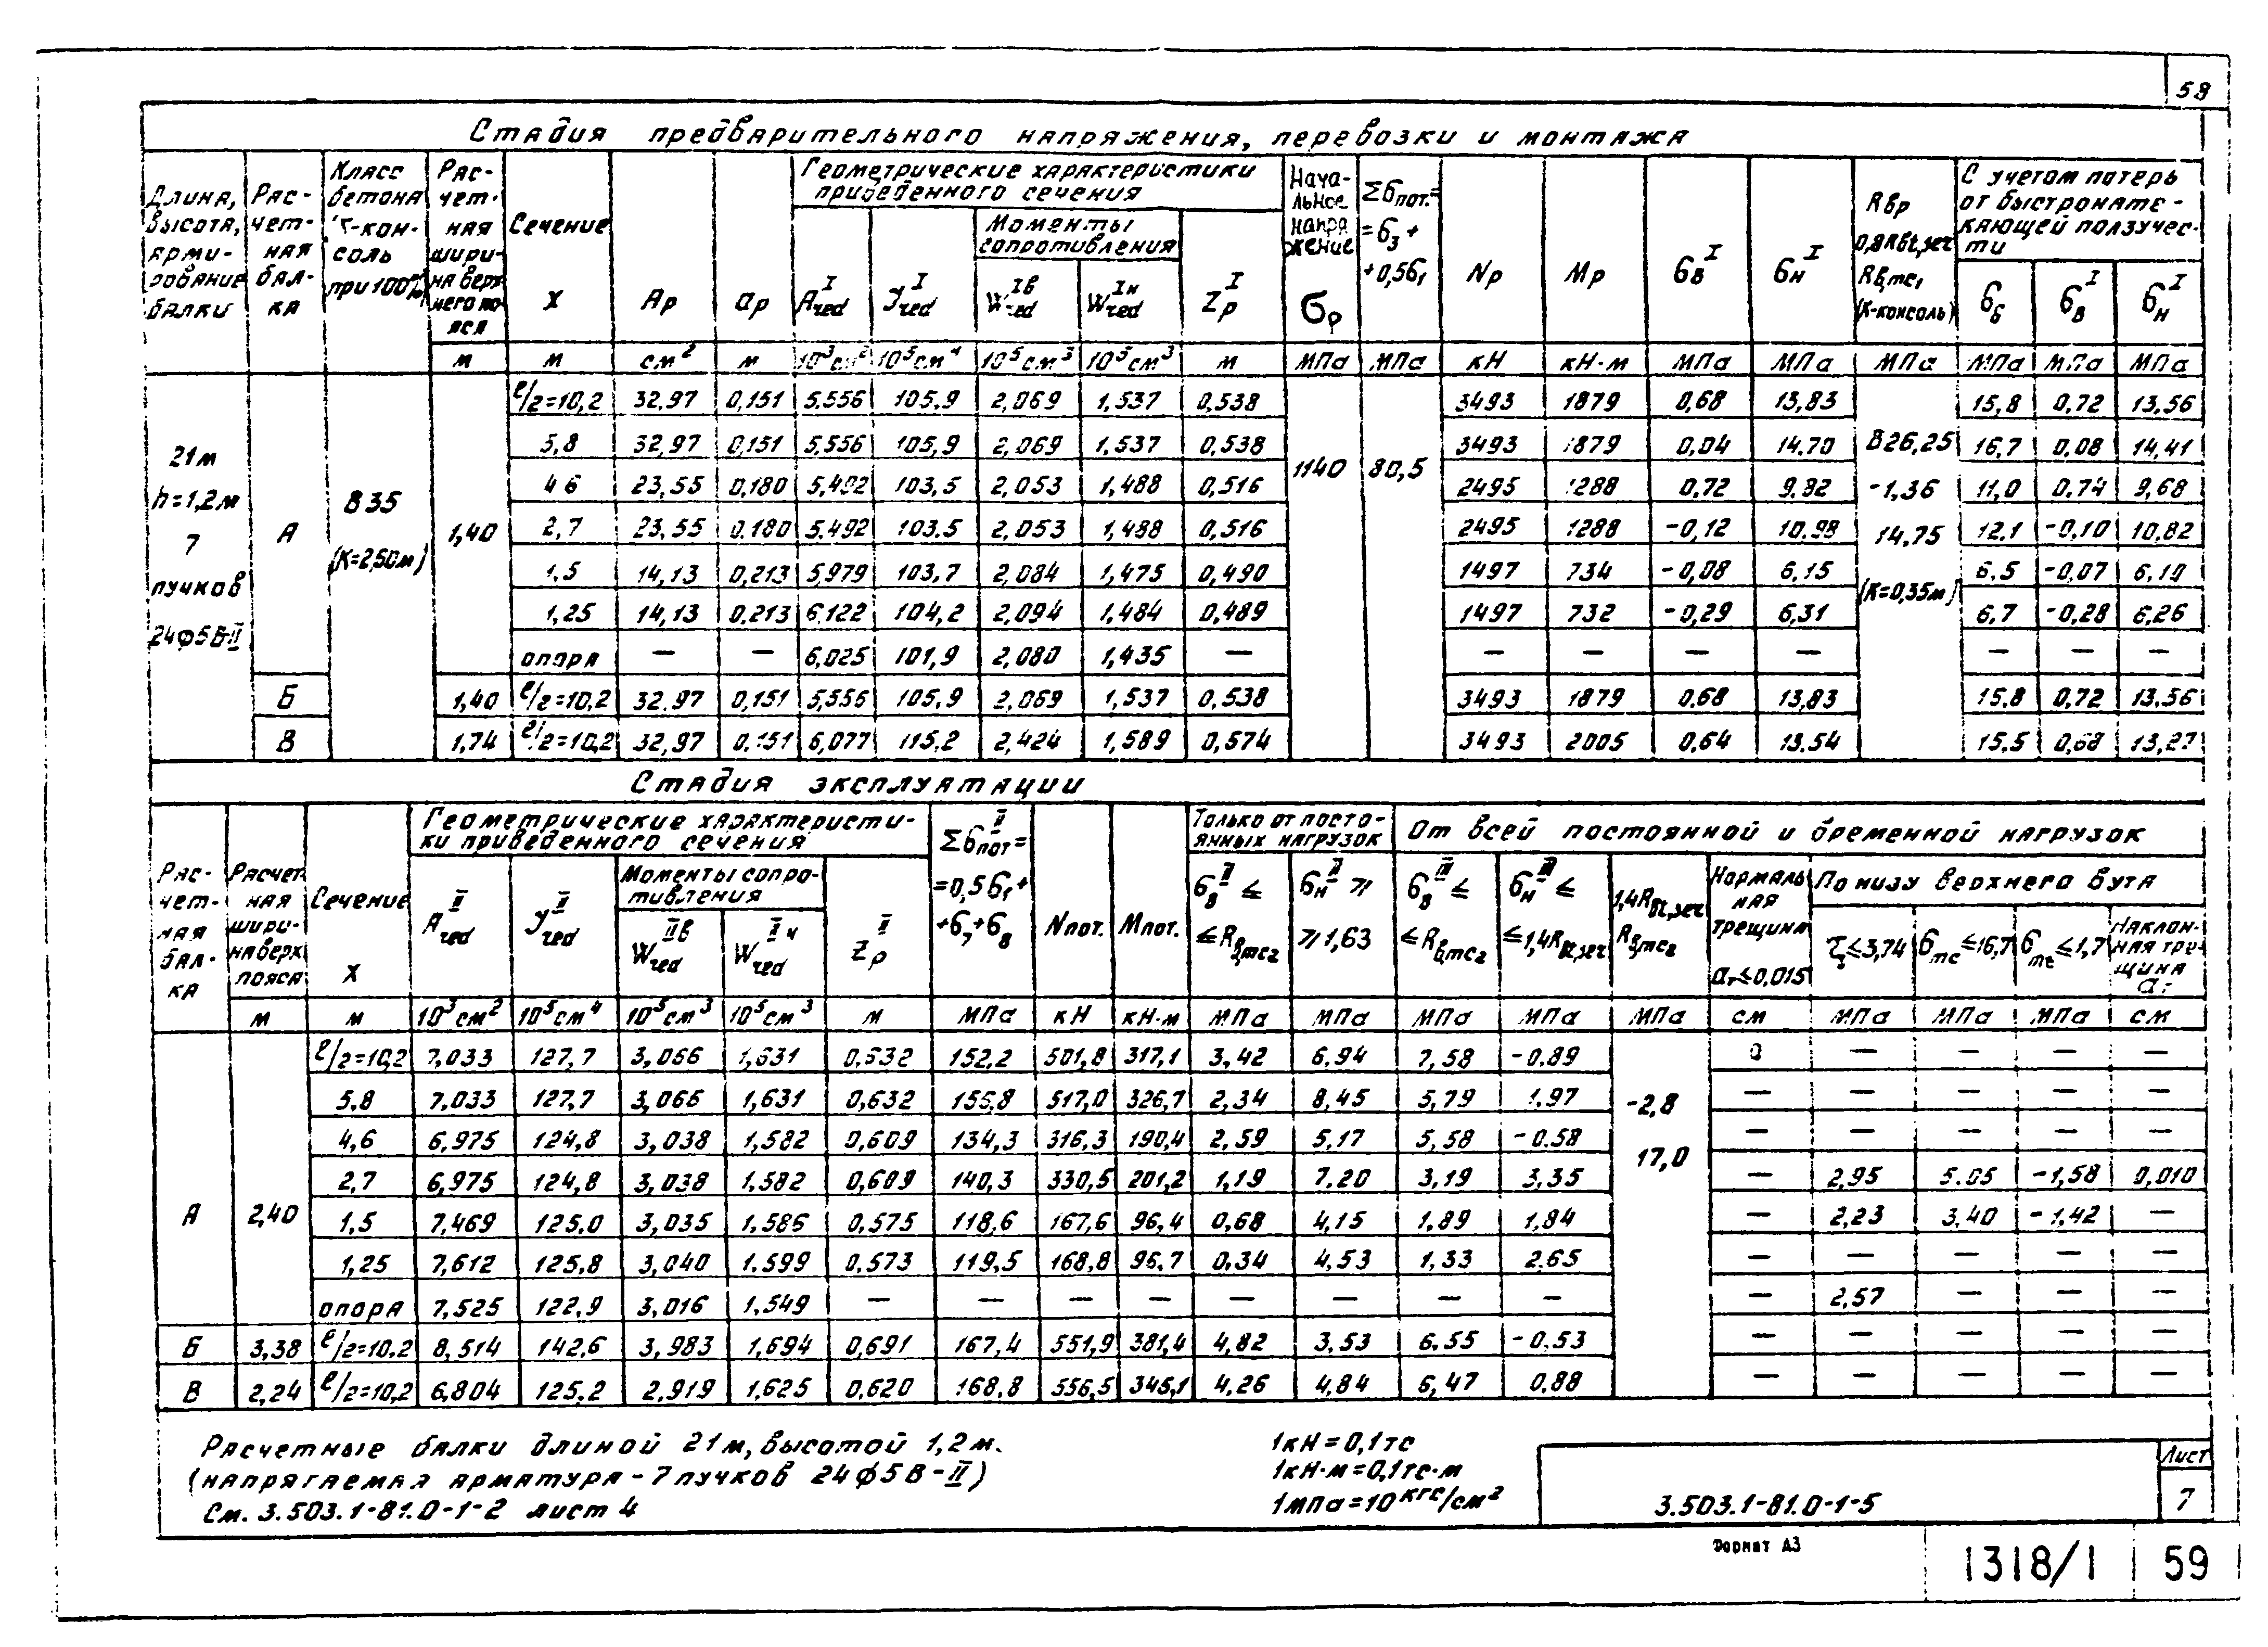 58
Стадия предварительного напряжения, перевозки и монтажа
Длина, высота, армирование балки
Расчетная балка
Класс бетона
консоль при 100%
Расчетная ширина верхнего пояса
Сечение X
Aр
aр
Геометрические характеристики приведенного сечения
A I red
У I red
Моменты сопротивления
W Iв red
W Iн red
Z I р
Начальное напряжение σр
Σσпот.= =σ3+ +0,5σ1
Nр
Mр
σ I в
σ I н
Rвр
0,8Rbt,ser
Rв,mc1
(K-консоль)
С учетом потерь от быстронатекающей ползучести
σб σ I в σ I н
м м см² м 10³см² 10⁵см⁴ 10⁵см³ 10⁵см³ м МПа МПа кН кН·м МПа МПа МПа МПа МПа МПа
21м
h=1,2м
7
пучков
24ф5В-II
А
В35
(K=2,50м)
1,40
1140
80,5
В26,25
-1,36
14,75
(K=0,35м)
ℓ/2=10,2 32,97 0,151 5,556 105,9 2,069 1,537 0,538 3493 1879 0,68 13,83 15,8 0,72 13,56
5,8 32,97 0,151 5,556 105,9 2,069 1,537 0,538 3493 1879 0,04 14,70 16,7 0,08 14,41
4,6 23,55 0,180 5,492 103,5 2,053 1,488 0,516 2495 1288 0,72 9,82 11,0 0,74 9,68
2,7 23,55 0,180 5,492 103,5 2,053 1,488 0,516 2495 1288 -0,12 10,98 12,1 -0,10 10,82
1,5 14,13 0,213 5,979 103,7 2,084 1,475 0,490 1497 734 -0,08 6,15 6,5 -0,07 6,10
1,25 14,13 0,213 6,122 104,2 2,094 1,484 0,489 1497 732 -0,29 6,31 6,7 -0,28 6,26
опора — — 6,025 101,9 2,080 1,435 — — — — — — — —
Б 1,40 ℓ/2=10,2 32,97 0,151 5,556 105,9 2,069 1,537 0,538 3493 1879 0,68 13,83 15,8 0,72 13,56
В 1,74 ℓ/2=10,2 32,97 0,151 6,077 115,2 2,424 1,589 0,574 3493 2005 0,64 13,54 15,5 0,68 13,27
Стадия эксплуатации
Расчетная балка
Расчетная ширина верх. пояса
Сечение X
Геометрические характеристики приведенного сечения
A II red
У II red
Моменты сопротивления
W IIв red
W IIн red
Z II р
Σσ II пот= =0,5σ1+ +σ7+σ8
Nпот.
Mпот.
Только от постоянных нагрузок
σ II в ≤ ≤Rв,mc2
σ II н ≥ ≥1,63
От всей постоянной и временной нагрузок
σ III в ≤ ≤Rв,mc2
σ III н ≤ ≤1,4Rbt,ser
1,4Rbt,ser
Rв,mc2
Нормальная трещина aт≤0,015
По низу верхнего вута
τ≤3,74 σmc≤16,7 σmt≤1,7
Наклонная трещина aт
м м 10³см² 10⁵см⁴ 10⁵см³ 10⁵см³ м МПа кН кН·м МПа МПа МПа МПа МПа см МПа МПа МПа см
А
2,40
-2,8
17,0
ℓ/2=10,2 7,033 127,7 3,066 1,631 0,632 152,2 501,8 317,1 3,42 6,94 7,58 -0,89 0 — — — —
5,8 7,033 127,7 3,066 1,631 0,632 156,8 517,0 326,7 2,34 8,45 5,79 1,97 — — — — —
4,6 6,975 124,8 3,038 1,582 0,609 134,3 316,3 190,4 2,59 5,17 5,58 -0,58 — — — — —
2,7 6,975 124,8 3,038 1,582 0,609 140,3 330,5 201,2 1,19 7,20 3,19 3,35 — 2,95 5,05 -1,58 0,010
1,5 7,469 125,0 3,035 1,586 0,575 118,6 167,6 96,4 0,68 4,15 1,89 1,84 — 2,23 3,40 -1,42 —
1,25 7,612 125,8 3,040 1,599 0,573 119,5 168,8 96,7 0,34 4,53 1,33 2,65 — — — — —
опора 7,525 122,9 3,016 1,549 — — — — — — — — — 2,57 — — —
Б 3,38 ℓ/2=10,2 8,514 142,6 3,983 1,694 0,691 167,4 551,9 381,4 4,82 3,53 6,55 -0,53 — — — — —
В 2,24 ℓ/2=10,2 6,804 125,2 2,919 1,625 0,620 168,8 556,5 345,1 4,26 4,84 6,47 0,88 — — — — —
Расчетные балки длиной 21м, высотой 1,2м.
(напрягаемая арматура - 7 пучков 24ф5В-II)
См. 3.503.1-81.0-1-2 лист 4
1кН=0,1тс
1кН·м=0,1тс·м
1мПа=10 кгс/см²
3.503.1-81.0-1-5
Лист
7
Формат А3
1318/1
59